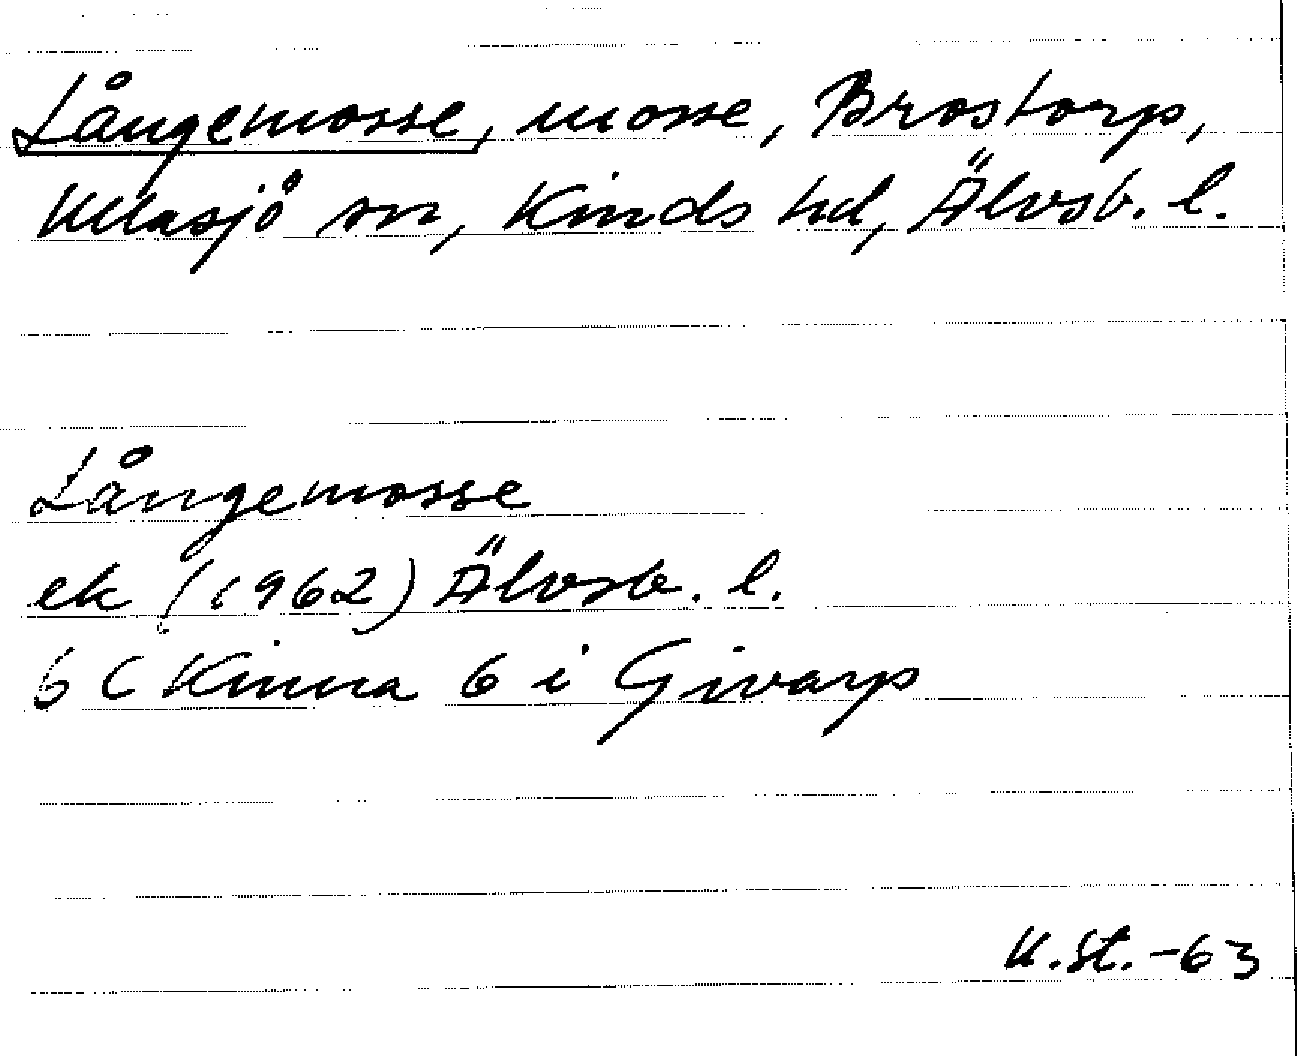 Långemosse, mosse, Brostorp,
Ullasjö sn, Kinds hd, Älvsb. l.
Långemosse
ek (1962) Älvsb. l.
6 C Kinna 6 i Givarp
U.St.-63